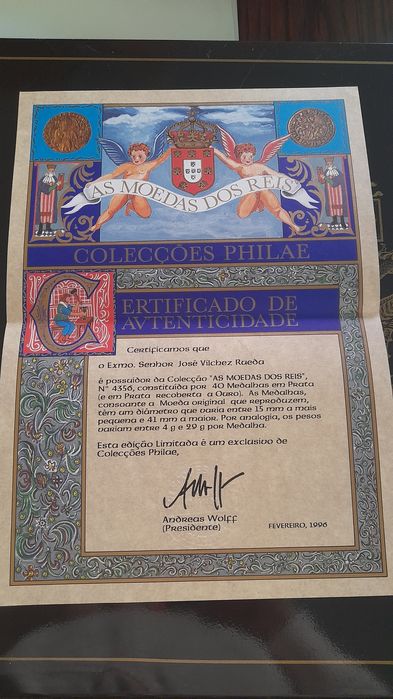 AS MOEDAS DOS REIS
COLECÇÕES PHILAE
CERTIFICADO DE
AVTENTICIDADE
Certificamos que
o Exmo. Senhor José Vilchez Rueda
é possuidor da Colecção "AS MOEDAS DOS REIS",
N° 4356, constituída por 40 Medalhas em Prata
(e em Prata recoberta a Ouro). As Medalhas,
consoante a Moeda original que reproduzem,
têm um diâmetro que varia entre 15 mm a mais
pequena e 41 mm a maior. Por analogia, os pesos
variam entre 4 g e 29 g por Medalha.
Esta edição Limitada é um exclusivo de
Colecções Philae,
Andreas Wolff
(Presidente)
FEVEREIRO, 1996